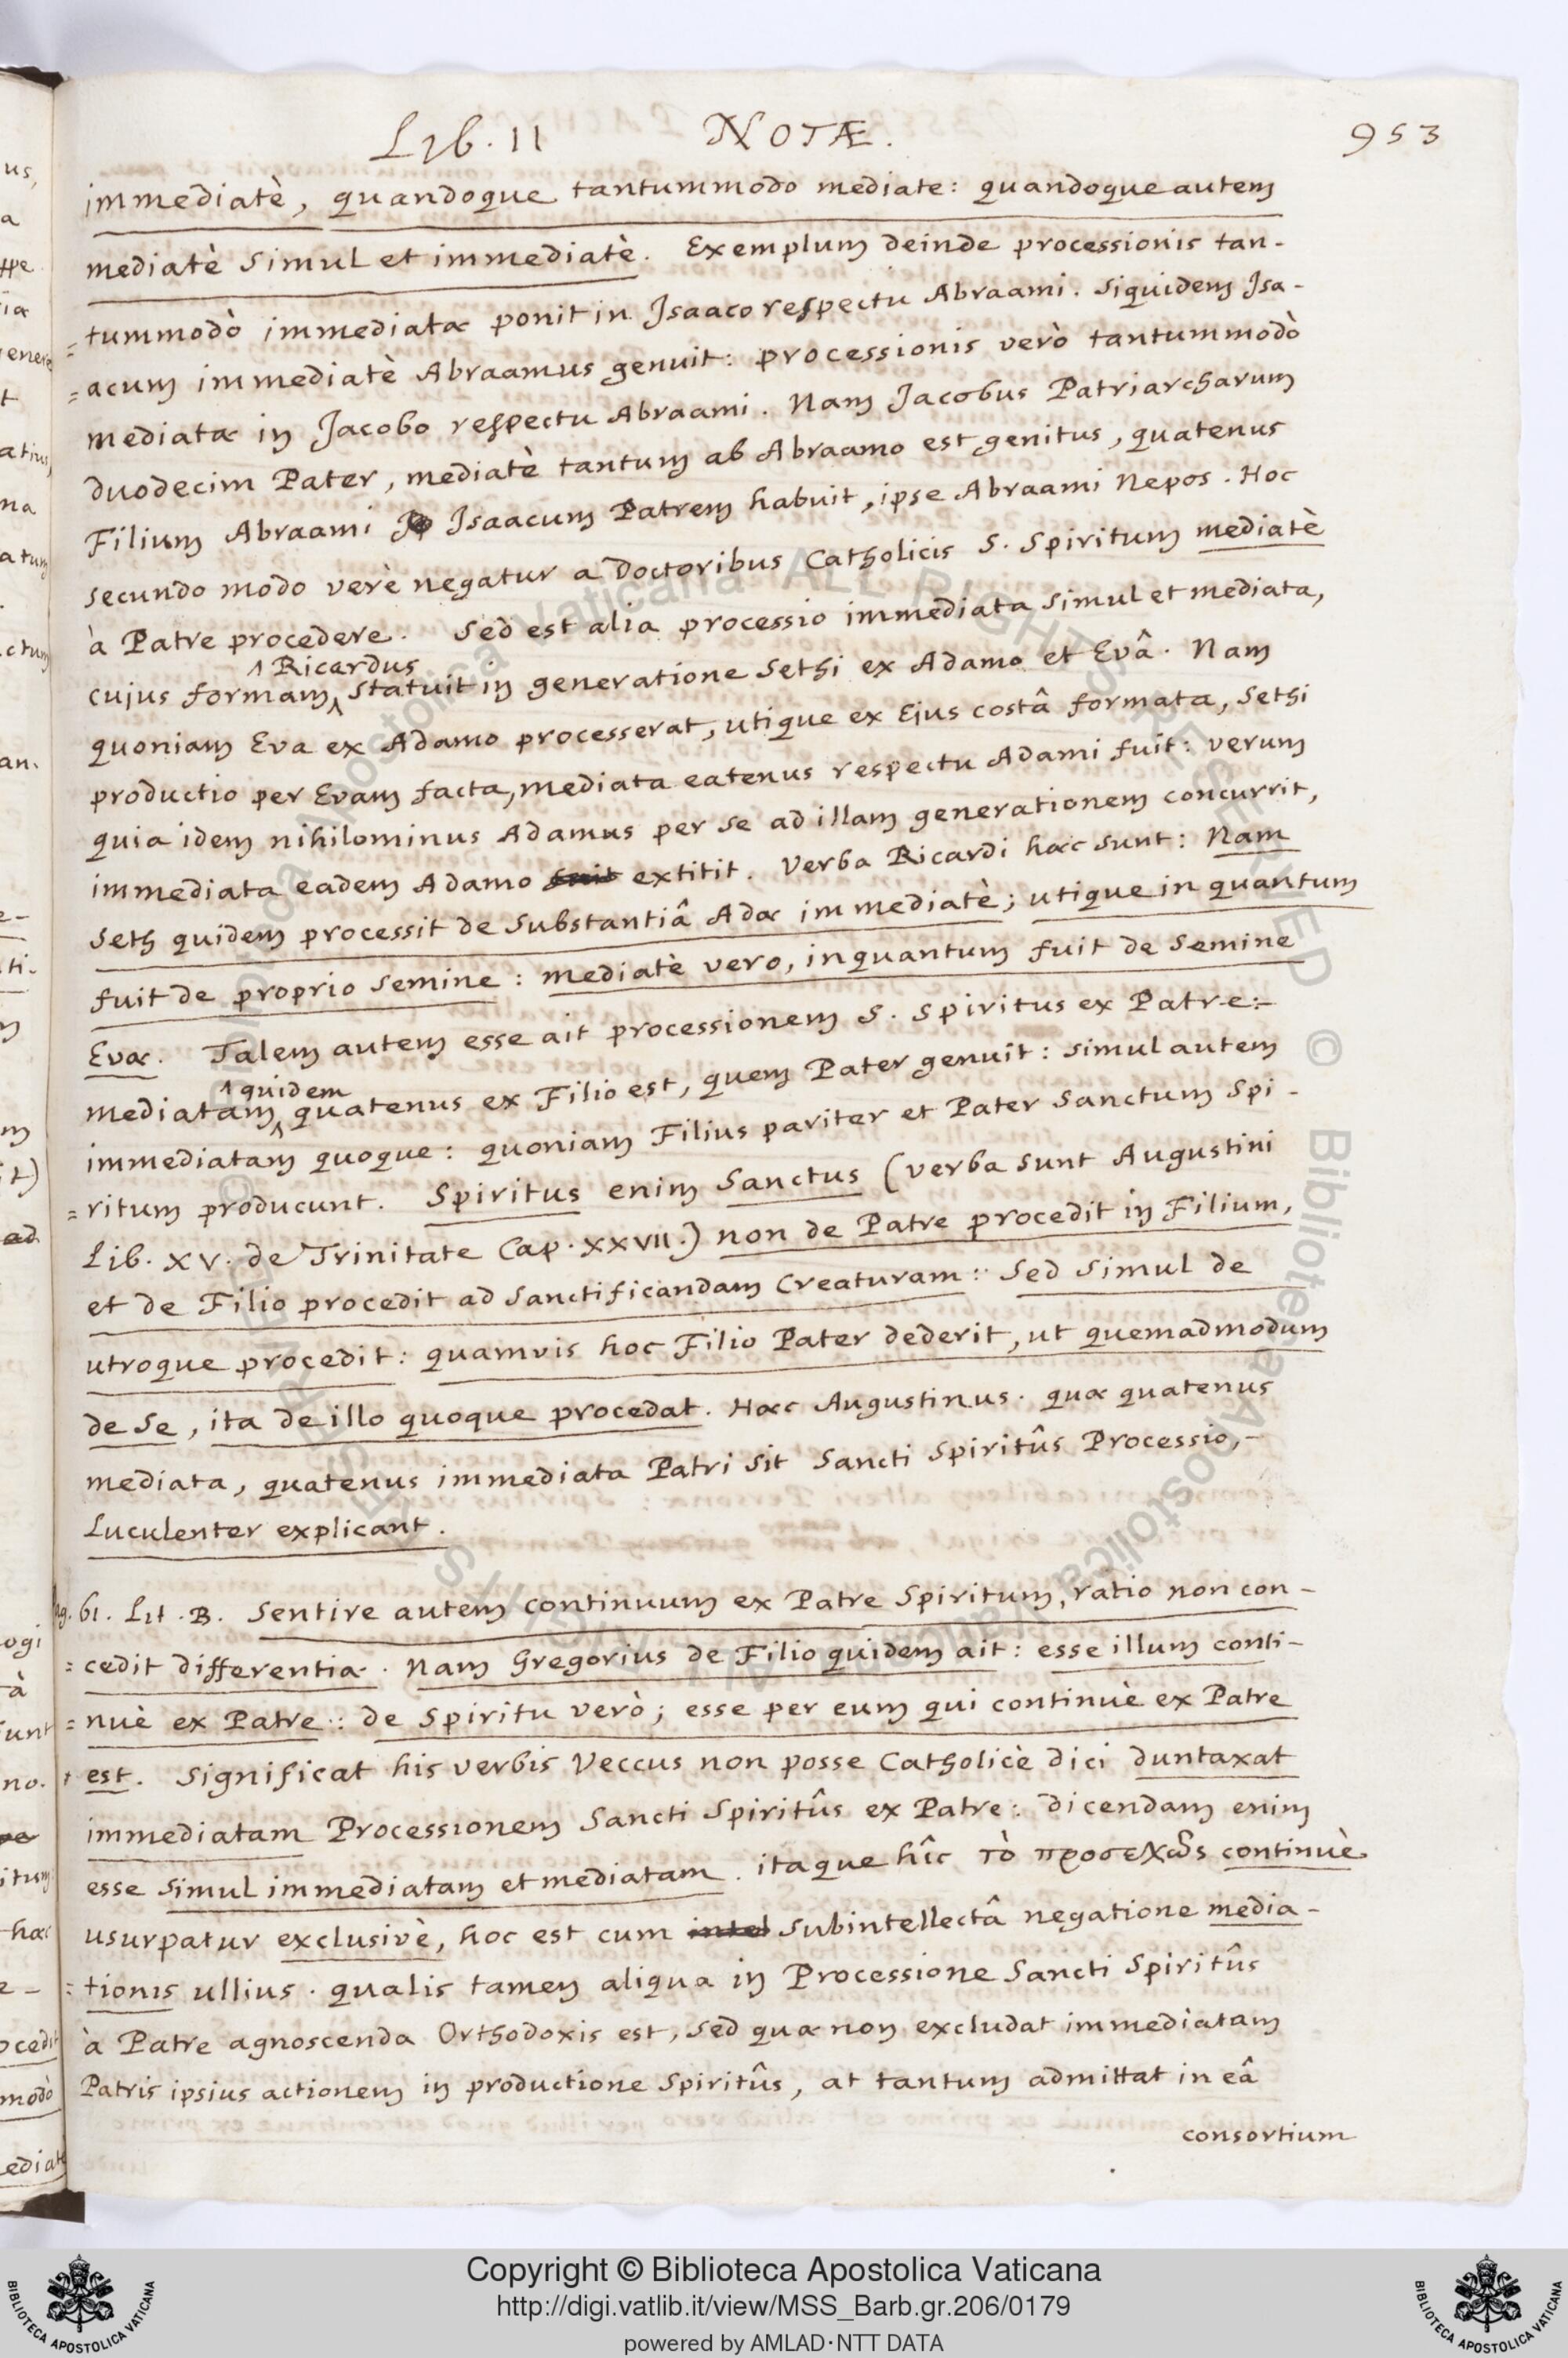 Lib. II NOTÆ. 953
immediatè, quandoque tantummodo mediate: quandoque autem
mediatè simul et immediatè. Exemplum deinde processionis tan-
=tummodò immediatæ ponit in Isaaco respectu Abraami. Siquidem Isa-
=acum immediatè Abraamus genuit: processionis verò tantummodò
mediatæ in Jacobo respectu Abraami. Nam Jacobus Patriarcharum
duodecim Pater, mediatè tantum ab Abraamo est genitus, quatenus
Filium Abraami Isaacum Patrem habuit, ipse Abraami Nepos. Hoc
secundo modo verè negatur a Doctoribus Catholicis S. Spiritum mediatè
à Patre procedere. Sed est alia processio immediata simul et mediata,
^ Ricardus
cujus formam ^ statuit in generatione Sethi ex Adamo et Evâ. Nam
quoniam Eva ex Adamo processerat, utique ex Ejus costâ formata, Sethi
productio per Evam facta, mediata eatenus respectu Adami fuit: verum
quia idem nihilominus Adamus per se ad illam generationem concurrit,
immediata eadem Adamo fuit extitit. Verba Ricardi hæc sunt: Nam
Seth quidem processit de substantiâ Adæ immediatè; utique in quantum
fuit de proprio semine: mediatè vero, inquantum fuit de semine
Evæ. Talem autem esse ait processionem S. Spiritus ex Patre:
^ quidem
mediatam ^ quatenus ex Filio est, quem Pater genuit: simul autem
immediatam quoque: quoniam Filius pariter et Pater Sanctum Spi-
=ritum producunt. Spiritus enim Sanctus (verba sunt Augustini
Lib. XV. de Trinitate Cap. XXVII.) non de Patre procedit in Filium,
et de Filio procedit ad sanctificandam Creaturam: Sed simul de
utroque procedit: quamvis hoc Filio Pater dederit, ut quemadmodum
de se, ita de illo quoque procedat. Hæc Augustinus. quæ quatenus
mediata, quatenus immediata Patri sit Sancti Spiritûs Processio,-
Luculenter explicant.
pag. 61. Lit. B. Sentire autem continuum ex Patre Spiritum, ratio non con-
=cedit differentiæ. Nam Gregorius de Filio quidem ait: esse illum conti-
=nuè ex Patre: de Spiritu verò; esse per eum qui continuè ex Patre
est. Significat his verbis Veccus non posse Catholicè dici duntaxat
immediatam Processionem Sancti Spiritûs ex Patre: dicendam enim
esse simul immediatam et mediatam. itaque hîc τὸ προσεχῶς continuè
usurpatur exclusivè, hoc est cum intel subintellectâ negatione media-
=tionis ullius. qualis tamen aliqua in Processione Sancti Spiritûs
à Patre agnoscenda Orthodoxis est, sed quæ non excludat immediatam
Patris ipsius actionem in productione Spiritûs, at tantum admittat in eâ
consortium
Copyright © Biblioteca Apostolica Vaticana
http://digi.vatlib.it/view/MSS_Barb.gr.206/0179
powered by AMLAD·NTT DATA